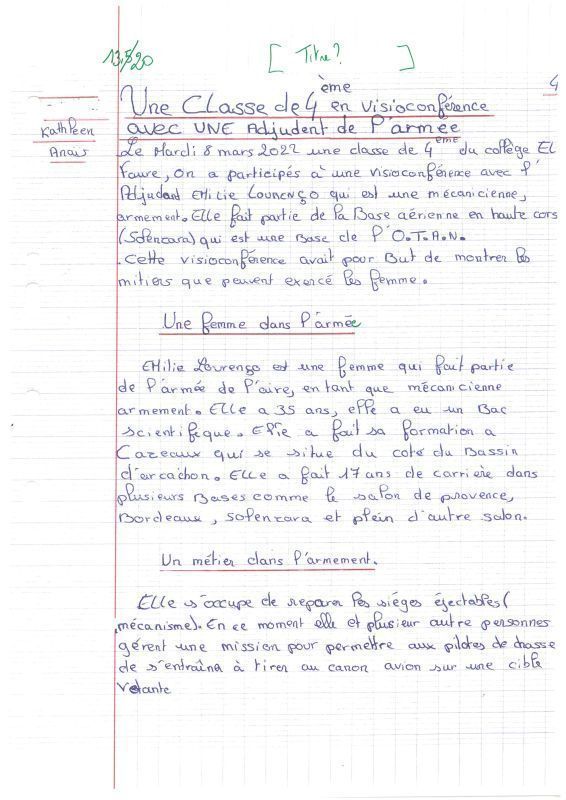 13,5/20 [ Titre? ]
4
Kathleen
Anaïs
Une Classe de 4ème en visioconférence
avec UNE Adjudent de l'armée
Le Mardi 8 mars 2022 une classe de 4ème du collège El
Faure, On a participés à une visioconférence avec l'
Adjudant EMilie LOURENÇO qui est une mécanicienne,
armement. Elle fait partie de la Base aérienne en haute cors
(Solenzara) qui est une Base de l'O.T.A.N.
.Cette visioconférence avait pour But de montrer les
mitiers que peuvent exercé les femme.
Une femme dans l'armée
EMilie Lourenço est une femme qui fait partie
de l'armée de l'aire, en tant que mécanicienne
armement. Elle a 35 ans, elle a eu un Bac
scientifique. Elle a fait sa formation a
Cazeaux qui se situe du coté du Bassin
d'arcachon. Elle a fait 17 ans de carrière dans
plusieurs Bases comme le salon de provence,
Bordeaux, Solenzara et plein d'autre salon.
Un métier dans l'armement.
Elle s'occupe de reparer les siéges éjectables (
mécanisme). En ce moment elle et plusieur autre personnes
gérent une mission pour permettre aux pilotes de chasse
de s'entraîna à tirer au canon avion sur une cible
volante